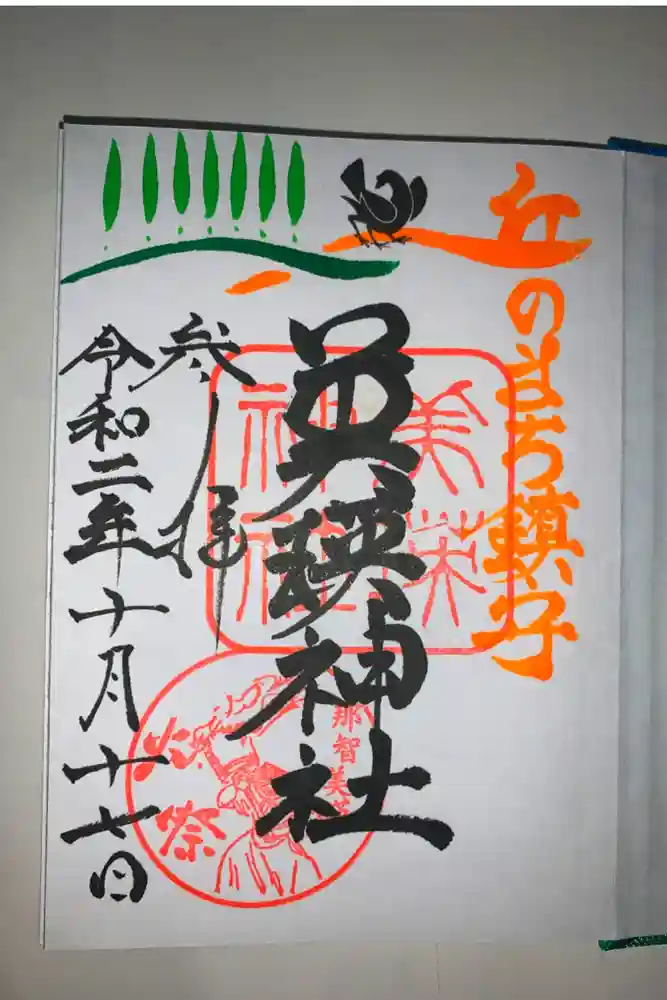 丘のまち鎮守
美瑛神社
美瑛
神社
那智美瑛
火祭
参拝
令和二年十月十七日